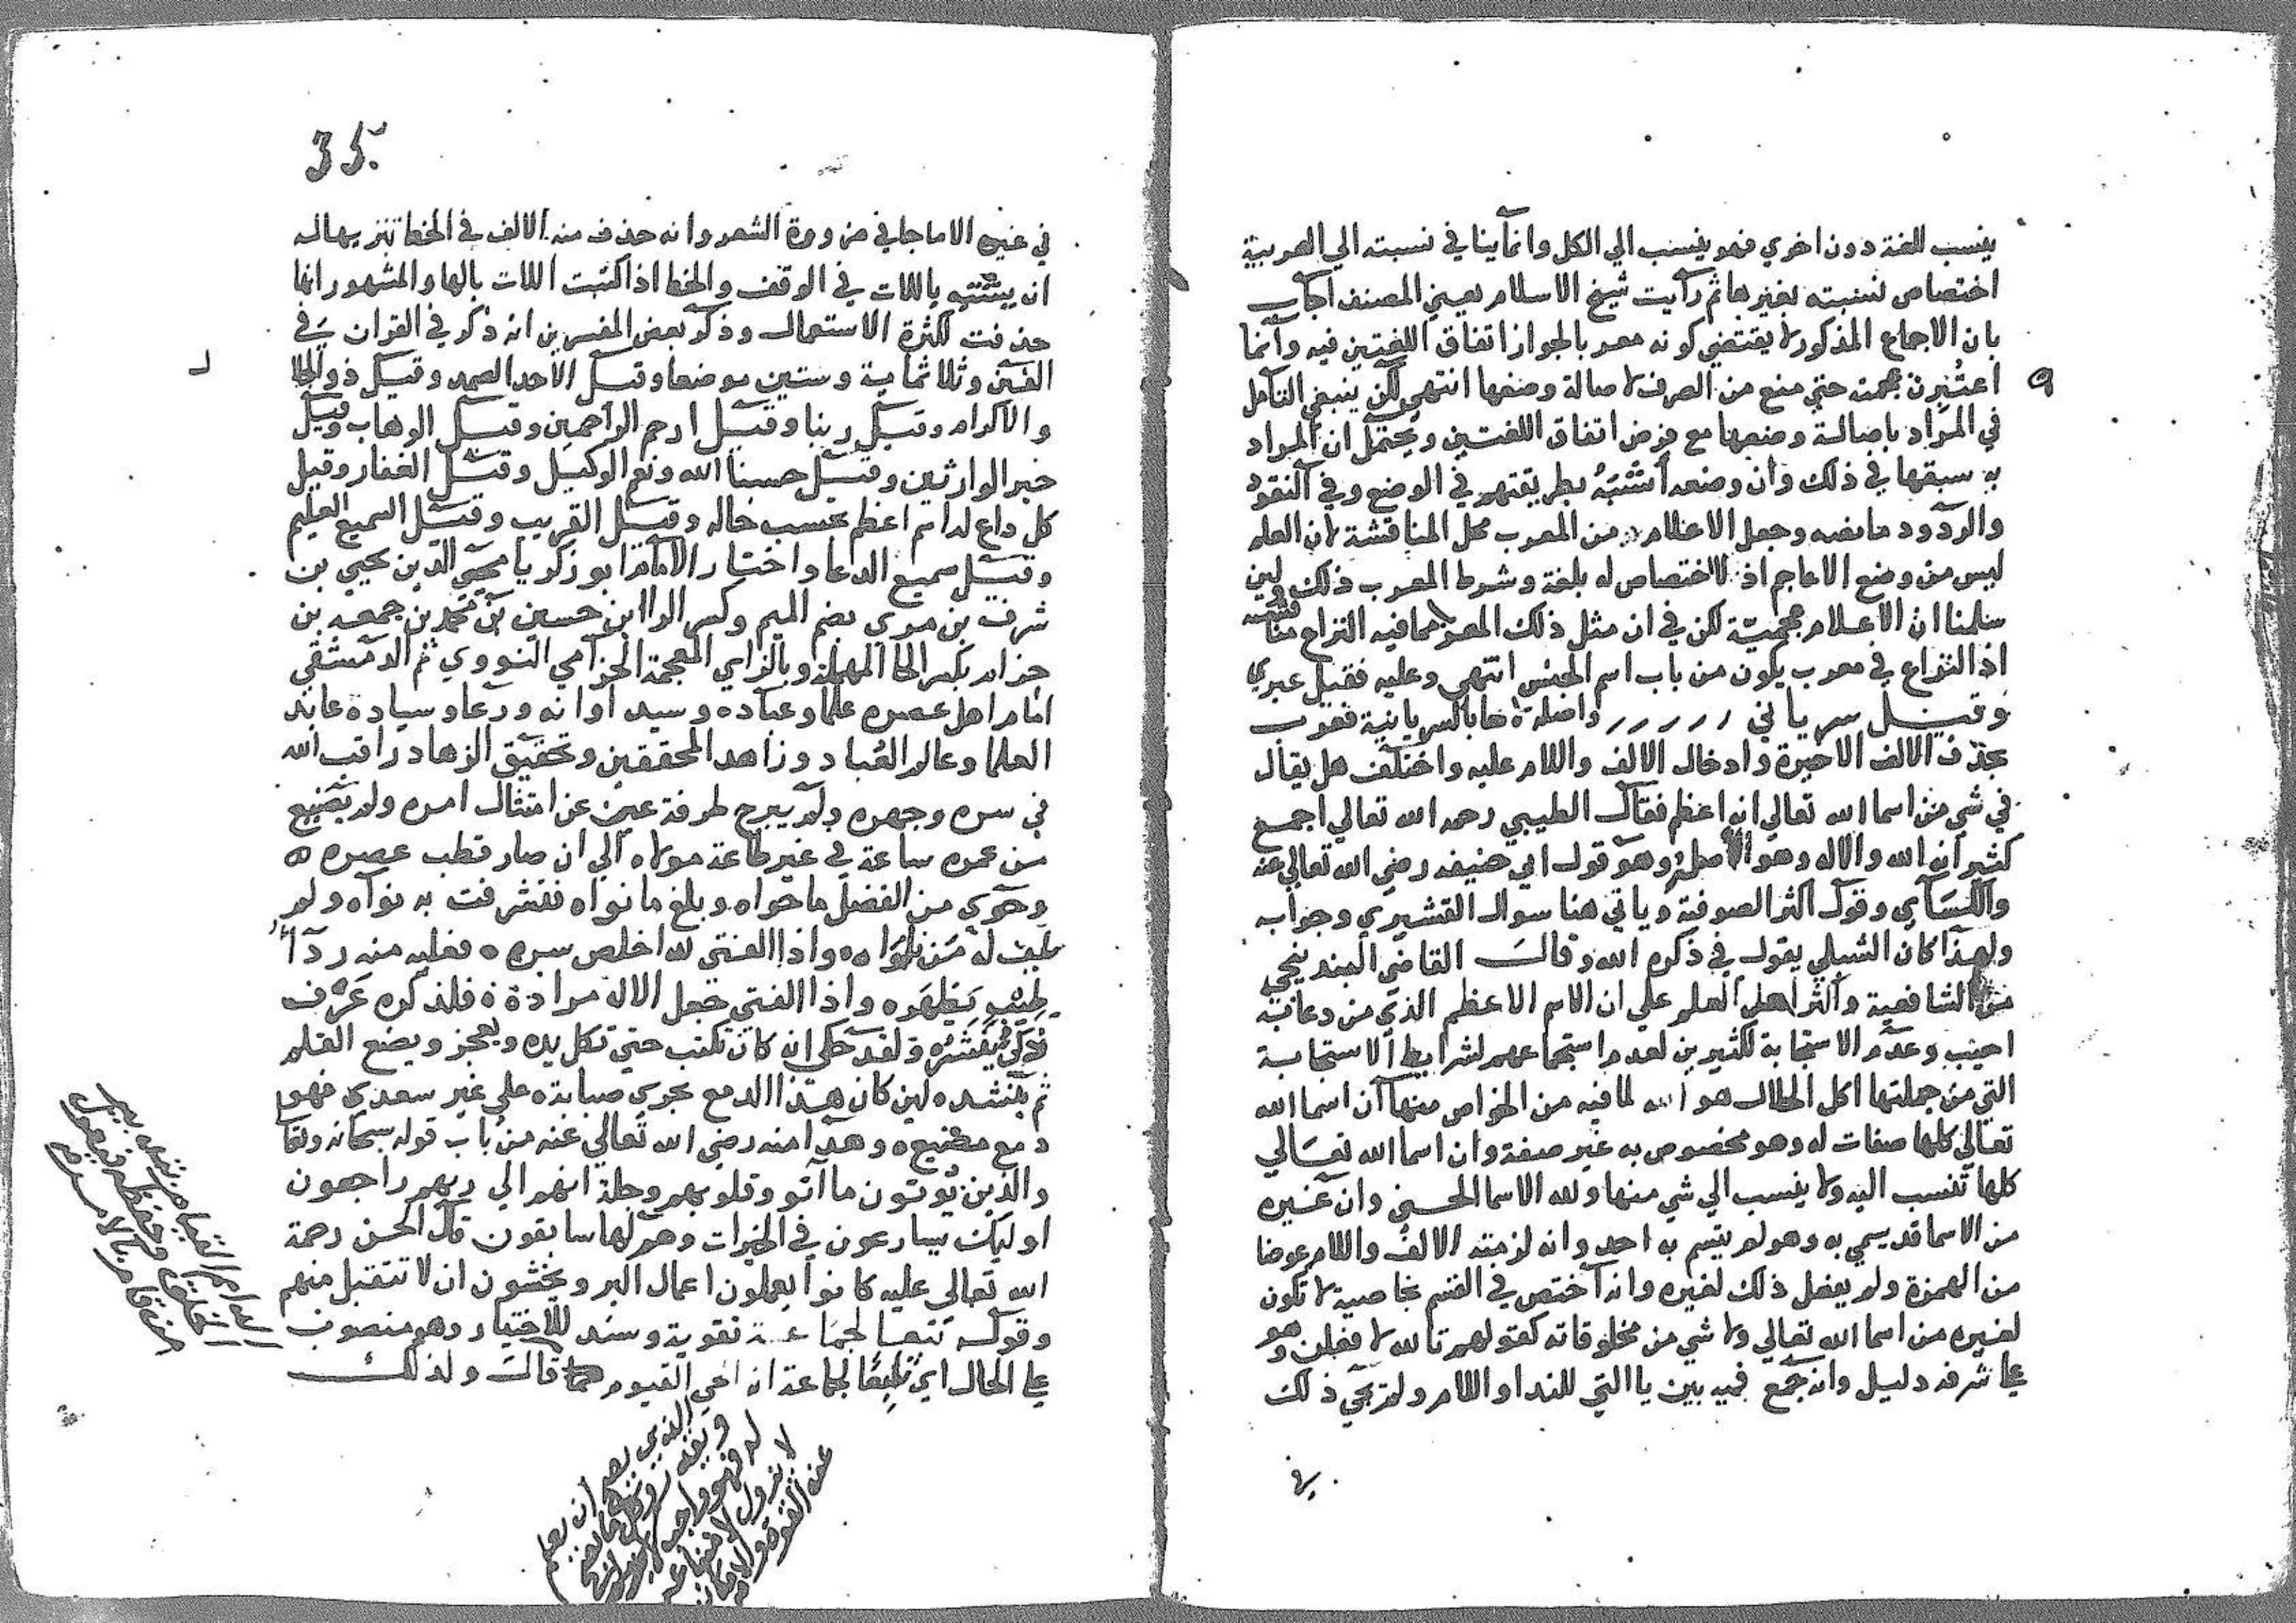 ينسب للغة دون اخري فهو ينسب الي الكل وانما ينافي نسبته الي العربية
اختصاص نسبته بغيرها ثم رأيت شيخ الاسلام يعني المصنف اجاب
بان الاجماع المذكور لا يقتضي كونه معربا لجواز اتفاق اللغتين فيه وانما
اعتبرت عجمته حتي منع من الصرف لاصالة وضعها انتهي لكن ينبغي التأمل
في المراد باصالة وضعها مع فرض اتفاق اللغتين ويحتمل ان المراد
به سبقها في ذلك وان وضعه اشبه بطريقتهم في الوضع وفي النقود
والردود ما نصه وجعل الاعلام من المعرب محل المناقشة لان العلم
ليس من وضع الاعاجم اذ لا اختصاص له بلغة وشرط المعرب ذلك ولين
سلمنا ان الاعلام عجمية لكن في ان مثل ذلك المعرب مما فيه النزاع مناقشة
اذ النزاع في معرب يكون من باب اسم الجنس انتهي وعليه فقيل عبري
وقيل سرياني واصله لاها بالسريانية فعرب
بحذف الالف الاخيرة وادخال الالف واللام عليه واختلف هل يقال
في شي من اسما الله تعالي انه اعظم فقال الطيبي رحمه الله تعالي اجمع
كثير انه الله والاله وهو الاصل وهو قول ابي حنيفه رضي الله تعالي عنه
والكسآي وقول اكثر الصوفية وياتي هنا سوال القشيري وجوابه
ولهذا كان الشبلي يقول في ذكره الله وقال القاضي البندنيجي
من الشافعية واكثر اهل العلم علي ان الاسم الاعظم الذي من دعا به
اجيب وعدم الاستجابة لكثيرين لعدم استجماعهم لشرايط الاستجابة
التي من جملتها اكل الحلال هو الله لما فيه من الخواص منها ان اسما الله
تعالي كلها صفات له وهو مخصوص به غير صفة وان اسما الله تعالي
كلها تنسب اليه ولا ينسب الي شي منها ولله الاسما الحسني وان غيره
من الاسما قد يسمي به وهو لم يتسم به احد وانه لزمته الالف واللام عوضا
من الهمزة ولم يفعل ذلك لغيره وانه اختص في القسم بخاصية لا تكون
لغيره من اسما الله تعالي ولا شي من مخلوقاته كقولهم تالله لا فعلن وهو
علي شرفه دليل وانه جمع فيه بين يا التي للندا واللام ولم يجي ذلك
في
35
في غيره الا ما جا في ضرورة الشعر وانه حذف منه الالف في الخط تنزيها له
ان يشتبه باللات في الوقف والخط اذا كتبت اللات بالها والمشهور انها
حذفت لكثرة الاستعمال وذكر بعض المفسرين انه ذكر في القران في
الفين وثلاثماية وستين موضعا وقيل الاحد الصمد وقيل ذو الجلا
ل
والاكرام وقيل ربنا وقيل ارحم الراحمين وقيل الوهاب وقيل
خير الوارثين وقيل حسبنا الله ونعم الوكيل وقيل الغفار وقيل
كل داع له اسم اعظم بحسب حاله وقيل القريب وقيل السميع العليم
وقيل سميع الدعا واختار الامام ابو زكريا محيي الدين يحيي بن
شرف بن مري بضم الميم وكسر الرا ابن حسين بن محمد بن جمعه بن
حزام بكسر الحا المهملة وبالزاي المعجمة الحزامي النووي ثم الدمشقي
امام اهل عصره علما وعباده وسيد اوانه ورعا وسيادة عابد
العلما وعالم العباد وزاهد المحققين وتحقيق الزهاد راقب الله
في سره وجهره ولم يبرح طرفة عين عن امتثال امره ولم يضيع
من عمره ساعة في غير طاعة مولاه الي ان صار قطب عصره
وحوي من الفضل ما حواه وبلغ ما نواه فتشرفت به نواه ولم
يلف له من ناواه واذا الفتي لله اخلص سره فعليه منه ردآ
طيب يظهره واذا الفتي جعل الاله مراده فلذكره عرف
ذكي ينشره ولقد حكي انه كان يكتب حتي تكل يده ويعجز ويضع القلم
ثم ينشد لين كان هذا الدمع يجري صبابة علي غير سعدي فهو
دمع مضيع وهذا منه رضي الله تعالي عنه من باب قوله سبحانه وتعا
والذين يوتون ما آتو وقلوبهم وجلة انهم الي ربهم راجعون
اوليك يسارعون في الخيرات وهم لها سابقون قال الحسن رحمة
الله تعالي عليه كانوا يعملون اعمال البر ويخشون ان لا تتقبل منهم
وقوله تبعا لجماعة تقوية وسند للاختيار وهو منصوب
علي الحال اي تابعا لجماعة انه الحي القيوم قال ولذلك